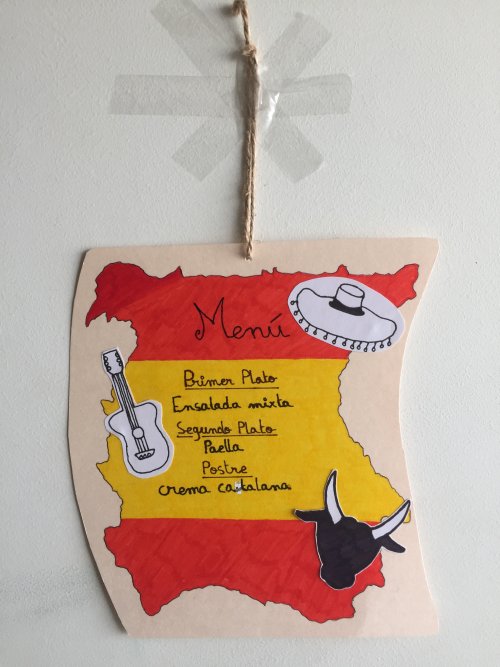 Menú
Primer Plato
Ensalada mixta
Segundo Plato
Paella
Postre
crema catalana